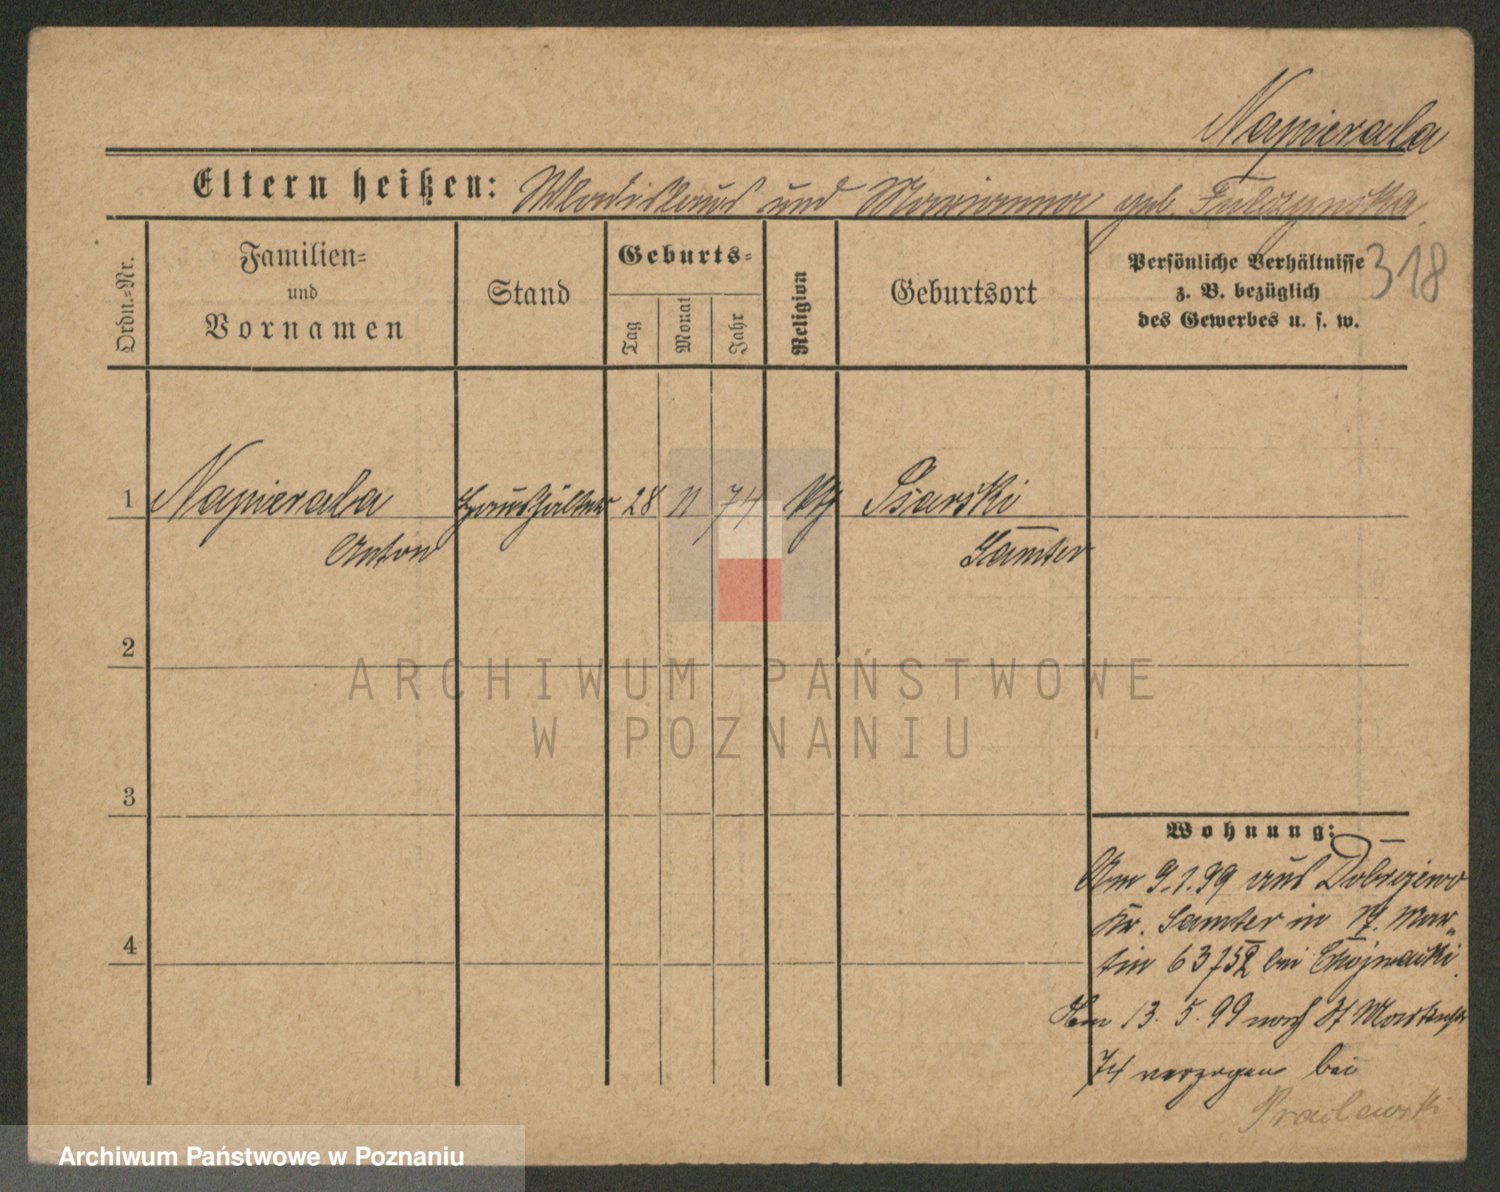 Napierala
Eltern heißen: Wladislaus und Marianna geb.
Ordn.-Nr.
Familien-
und
Vornamen
Stand
Geburts-
Tag
Monat
Jahr
Religion
Geburtsort
Persönliche Verhältnisse
z. B. bezüglich
des Gewerbes u. s. w.
318
1 Napierala Haushälter 28 11 74 kth Psarski
Anton Samter
2
ARCHIWUM PAŃSTWOWE
W POZNANIU
3
Wohnung:
Am 9.1.99 aus Dobrojewo
Kr. Samter in St. Mar-
tin 63 bei
4
Am 13.5.99 nach St Martinstr
74 verzogen bei
Archiwum Państwowe w Poznaniu